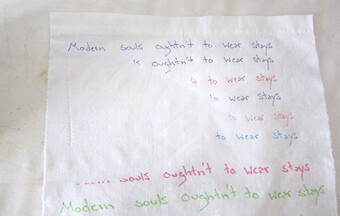 Modern souls oughtn't to wear stays
k oughtn't to wear stays
't to wear stays
to wear stays
to wear stays
to wear stays
...... souls oughtn't to wear stays
Modern souls oughtn't to wear stays